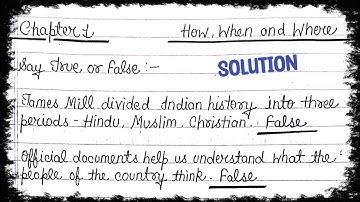 Chapter 1 How, When and Where
Say True or False :-
SOLUTION
James Mill divided Indian history into three
periods - Hindu, Muslim, Christian. False
Official documents help us understand what the
people of the country think. False